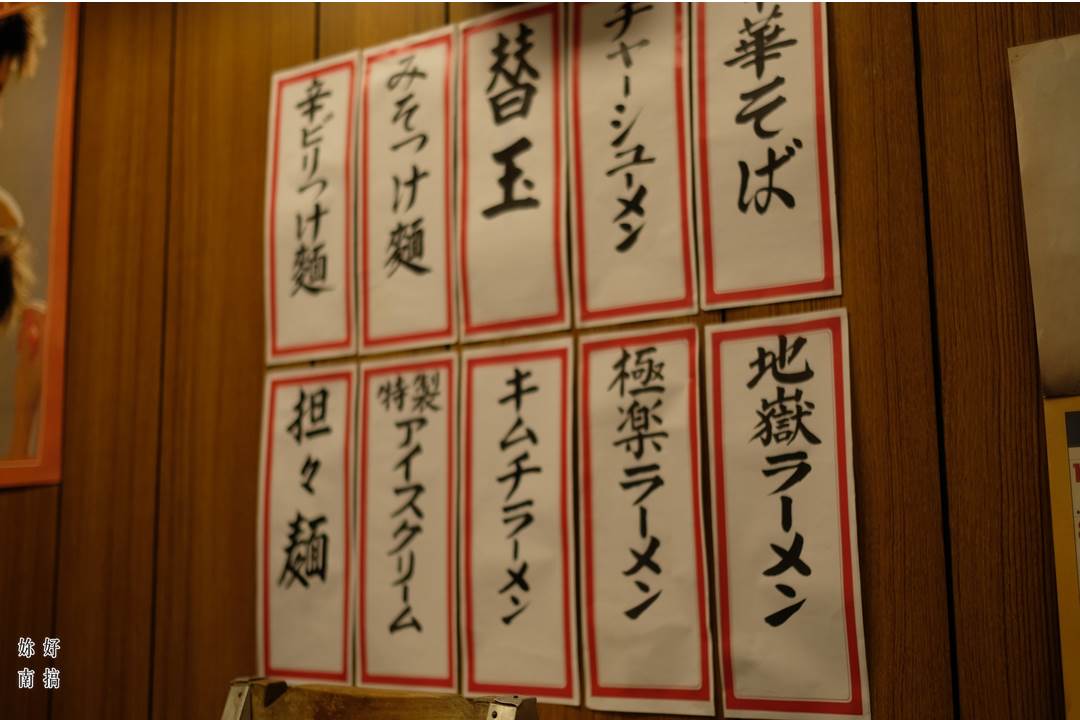 華そば
チャーシューメン
替玉
みそつけ麺
辛ビリつけ麺
地獄ラーメン
極楽ラーメン
キムチラーメン
特製
アイスクリーム
担々麺
妳好
南搞